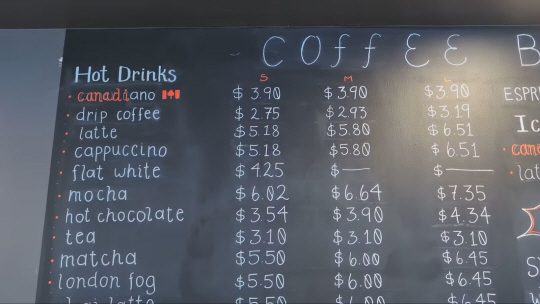 COFFEE B
Hot Drinks
S M L
canadiano $3.90 $3.90 $3.90
drip coffee $2.75 $2.93 $3.19
latte $5.18 $5.80 $6.51
cappuccino $5.18 $5.80 $6.51
flat white $4.25 $— $—
mocha $6.02 $6.64 $7.35
hot chocolate $3.54 $3.90 $4.34
tea $3.10 $3.10 $3.10
matcha $5.50 $6.00 $6.45
london fog $5.50 $6.00 $6.45
latte $5.50 $6.00 $6.45
ESPR
Ic
can
lat
S